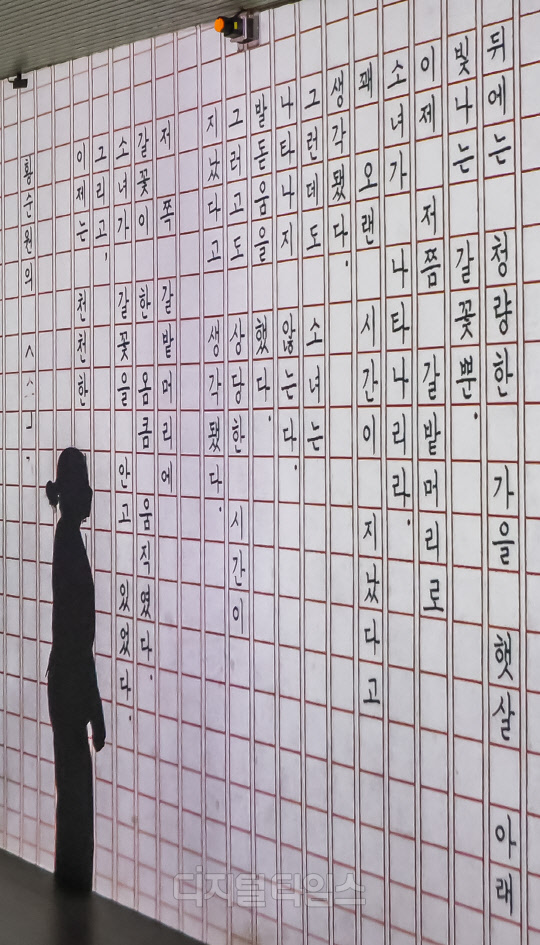 뒤에는 청량한 가을 햇살 아래
빛나는 갈꽃뿐.
이제 저쯤 갈밭머리로
소녀가 나타나리라.
꽤 오랜 시간이 지났다고
생각됐다.
그런데도 소녀는
나타나지 않는다.
발돋움을 했다.
그러고도 상당한 시간이
지났다고 생각됐다.
저 쪽 갈밭머리에
갈꽃이 한 옴큼 움직였다.
소녀가 갈꽃을 안고 있었다.
그리고,
이제는 천천한
황순원의
디지털타임스